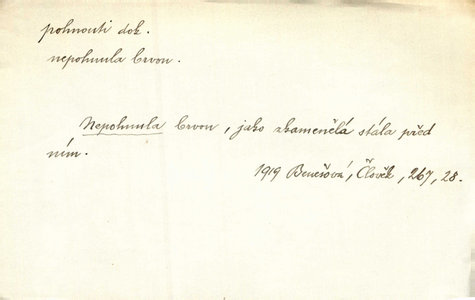 pohnouti dok.
nepohnula brvou.
Nepohnula brvou, jako zkamenělá stála před
ním.
1919 Benešová, Člověk, 267, 28.